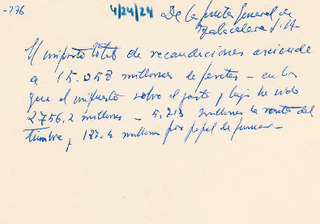 -776
4/24/24
De la Junta General de
Tabacalera S.A.
El importe total de recaudaciones asciende
a 15.053 millones de pesetas - en los
que el impuesto sobre el gasto y lujo ha sido
2756.2 millones - 5.213 millones la renta del
timbre, y 187.4 millones por papel de fumar -